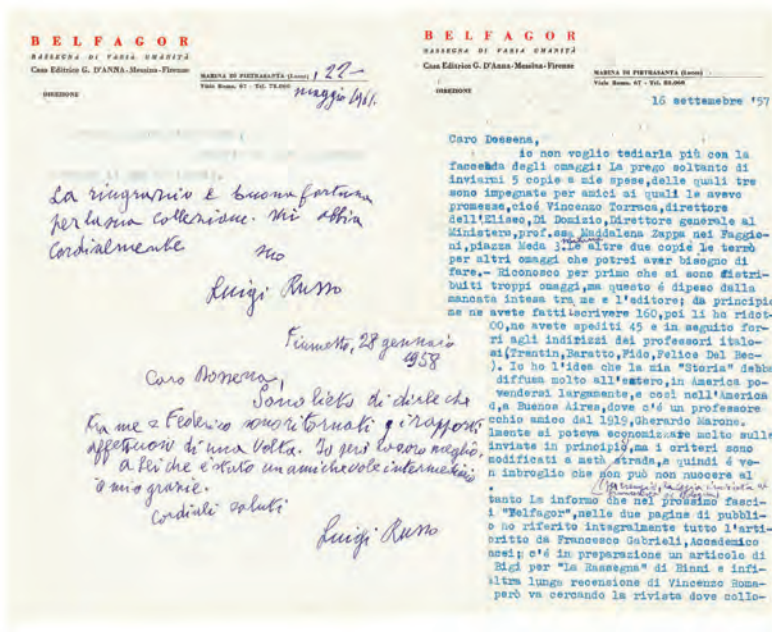 BELFAGOR
RASSEGNA DI VARIA UMANITÀ
Casa Editrice G. D'ANNA - Messina - Firenze
DIREZIONE
MARINA DI PIETRASANTA (Lucca), 22
Viale Roma, 67 - Tel.
maggio 1961.
La ringrazio e buona fortuna
per la sua collezione. Mi abbia
cordialmente
suo
Luigi Russo
Fiumetto, 28 gennaio
1958
Caro Dossena,
Sono lieto di dirle che
tra me e Federico sono ritornati i rapporti
affettuosi di una volta. Io però
a lei che è stato un amichevole intermediario
grazie.
Cordiali saluti
Luigi Russo
BELFAGOR
RASSEGNA DI VARIA UMANITÀ
Casa Editrice G. D'Anna - Messina - Firenze
DIREZIONE
MARINA DI PIETRASANTA (Lucca)
Viale Roma, 67 - Tel.
16 settembre '57
Caro Dossena,
io non voglio tediarla più con la
faccenda degli omaggi: La prego soltanto di
inviarmi 5 copie a mie spese, delle quali tre
sono impegnate per amici ai quali le avevo
promesse, cioé Vincenzo Torraca, direttore
dell'Eliseo, Di Domizio, Direttore generale al
Ministero, prof.ssa Maddalena Zappa nei Faggio-
ni, piazza Meda 3. Le altre due copie le terrò
per altri omaggi che potrei aver bisogno di
fare.- Riconosco per primo che si sono distri-
buiti troppi omaggi, ma questo é dipeso dalla
mancata intesa tra me e l'editore; da principio
me ne avete fatti iscrivere 160, poi li ho ridot-
00, ne avete spediti 45 e in seguito for-
ri agli indirizzi dei professori italo-
si (Trentin, Baratto, Fido, Felice Del Bec-
). Io ho l'idea che la mia "Storia" debba
diffusa molto all'estero, in America po-
vendersi largamente, e così nell'America
d, a Buenos Aires, dove c'é un professore
cchio amico dal 1919, Gherardo Marone.
lmente si poteva economizzare molto sulle
inviate in principio, ma i criteri sono
modificati a metà strada, e quindi é ve-
n imbroglio che non può non nuocere al
.
tanto La informo che nel prossimo fasci-
i "Belfagor", nelle due pagine di pubbli-
o ho riferito integralmente tutto l'arti-
critto da Francesco Gabrieli, Accademico
ncei; c'é in preparazione un articolo di
Bigi per "La Rassegna" di Binni e infi-
altra lunga recensione di Vincenzo Roma-
però va cercando la rivista dove collo-